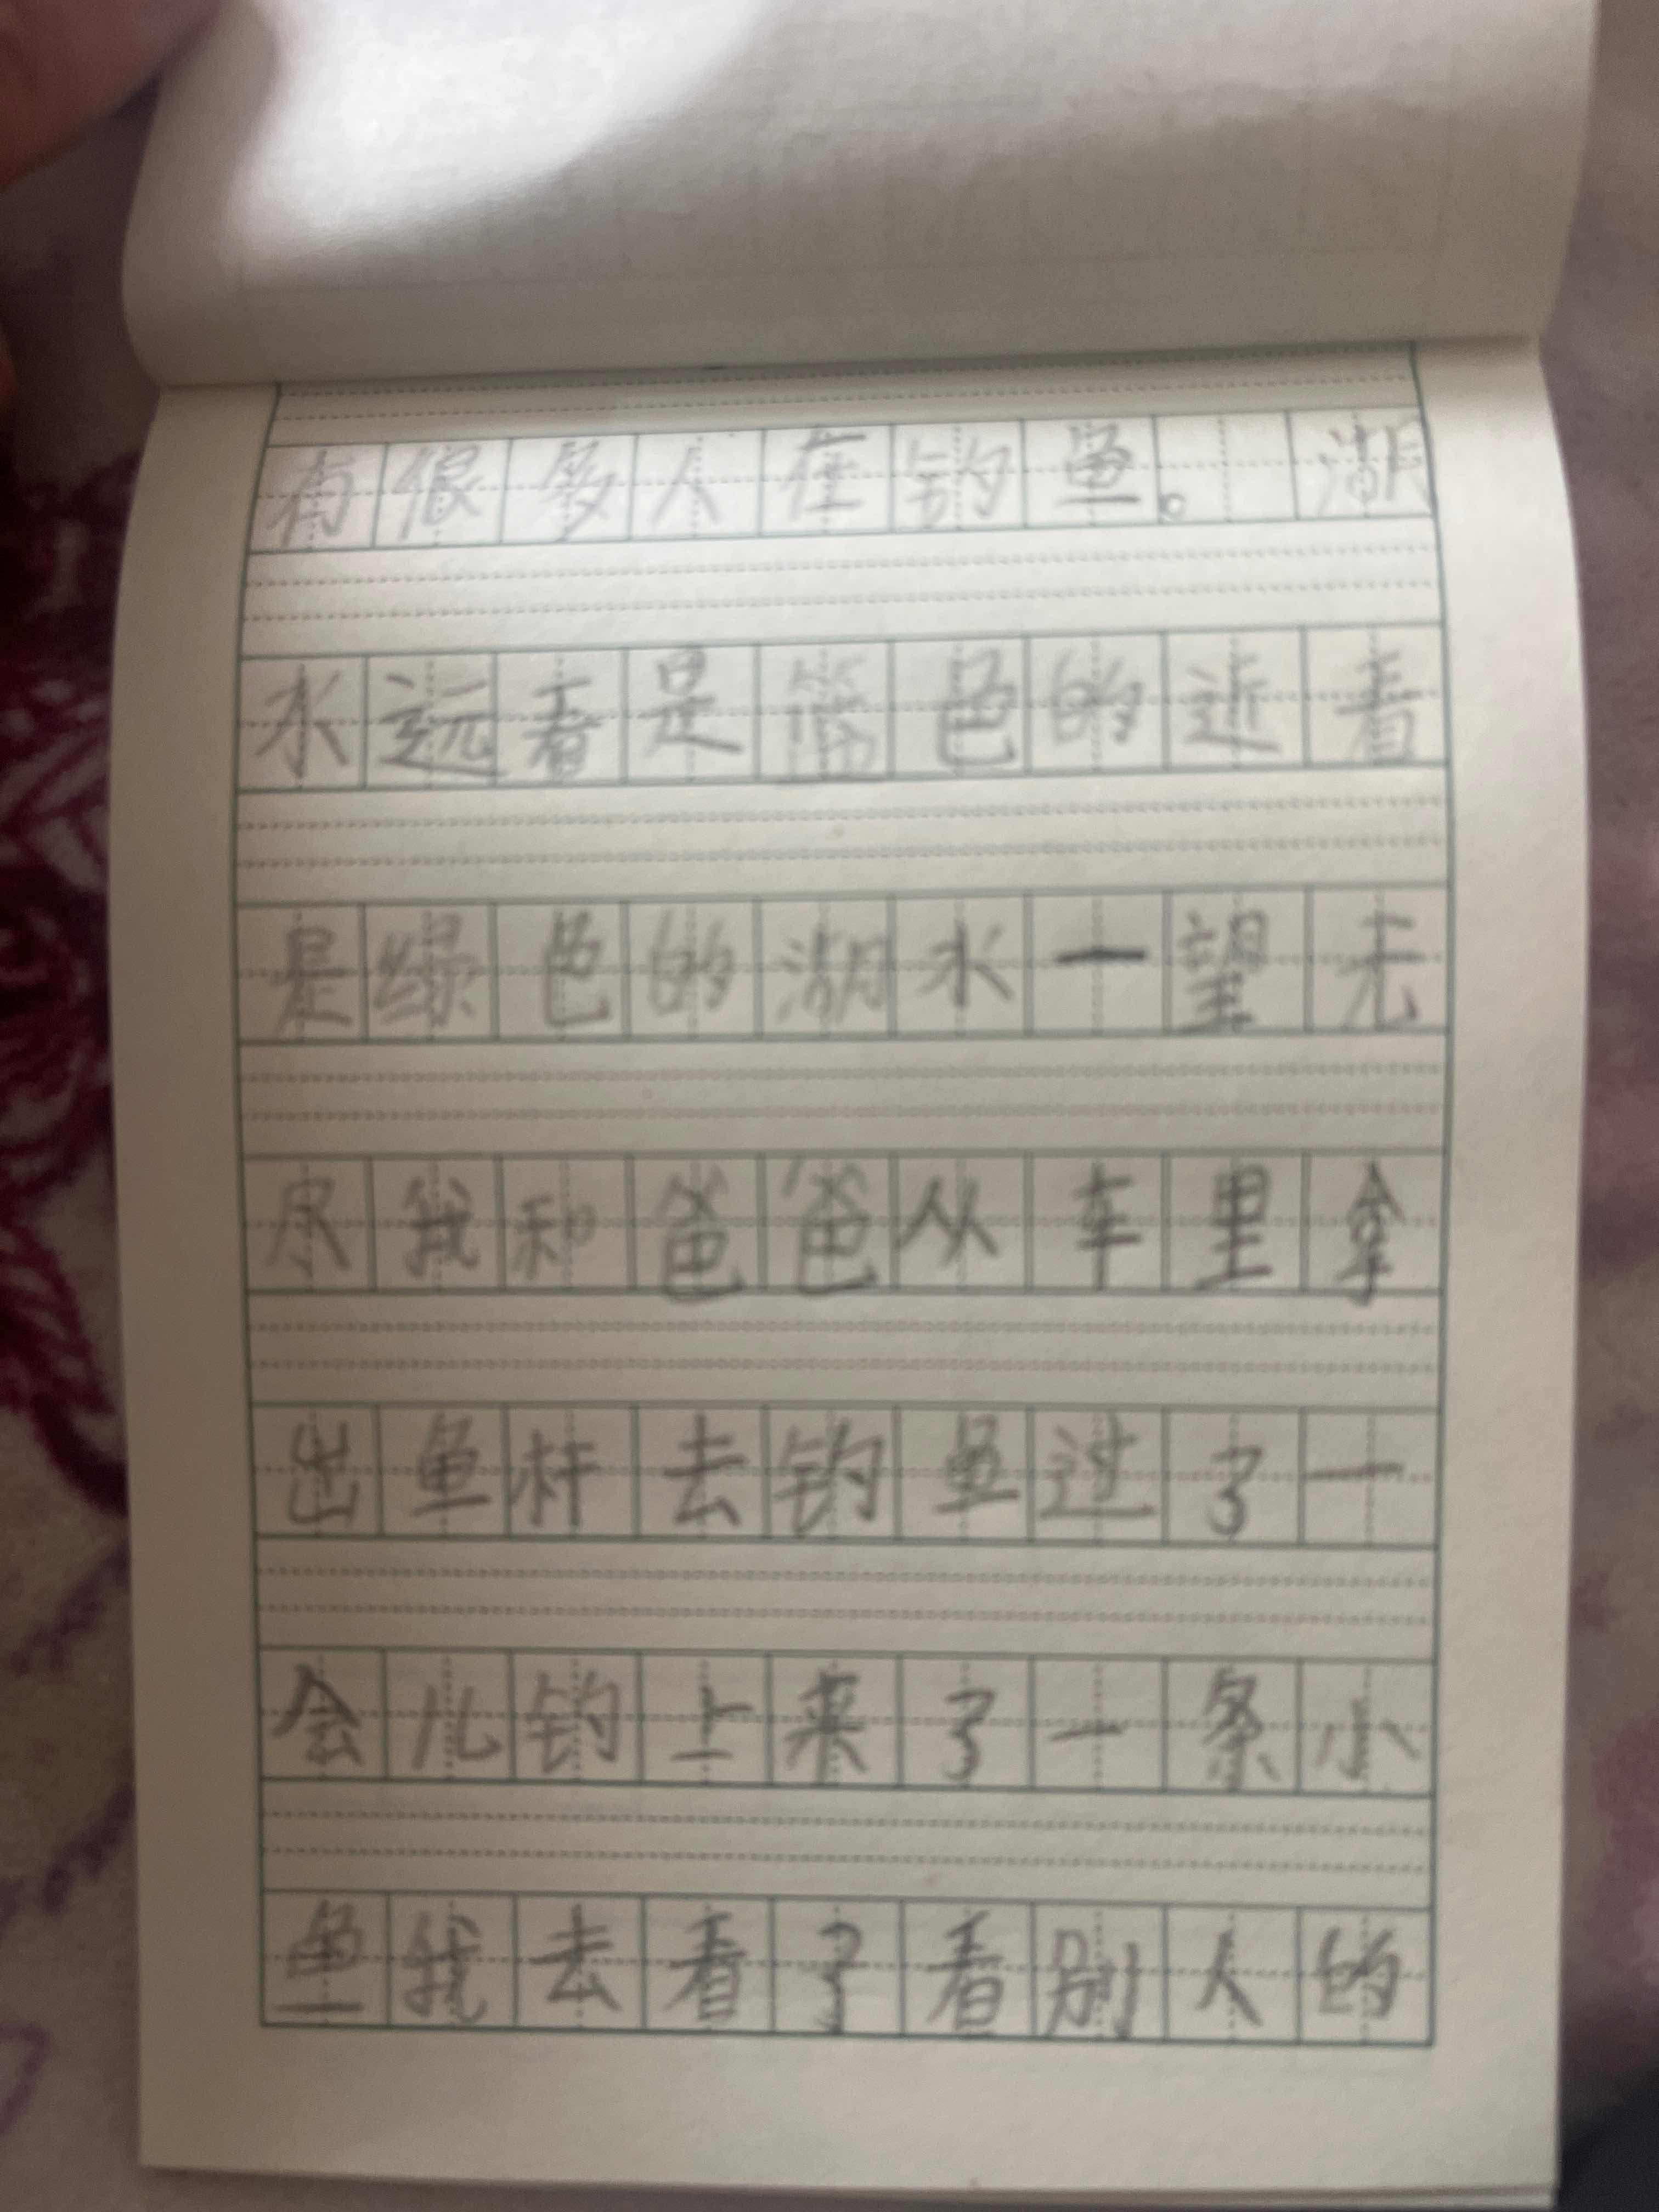 有很多人在钓鱼。湖
水远看是蓝色的近看
是绿色的湖水一望无
尽我和爸爸从车里拿
出鱼杆去钓鱼过了一
会儿钓上来了一条小
鱼我去看了看别人的